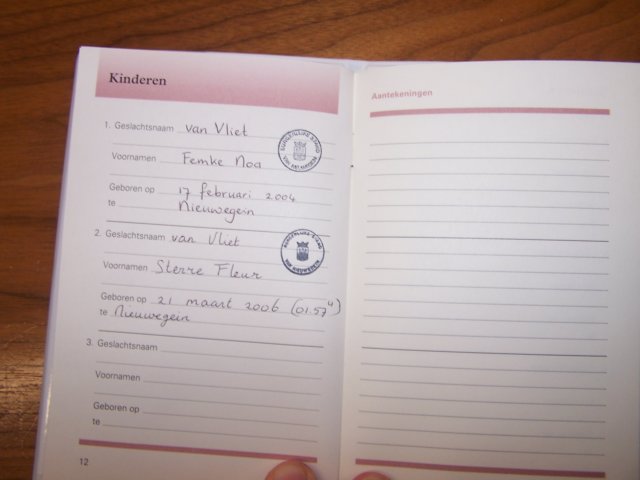 Kinderen
1. Geslachtsnaam van Vliet
Voornamen Femke Noa
Geboren op 17 februari 2004
te Nieuwegein
2. Geslachtsnaam van Vliet
Voornamen Sterre Fleur
Geboren op 21 maart 2006 (01.57 u)
te Nieuwegein
3. Geslachtsnaam
Voornamen
Geboren op
te
12
Aantekeningen